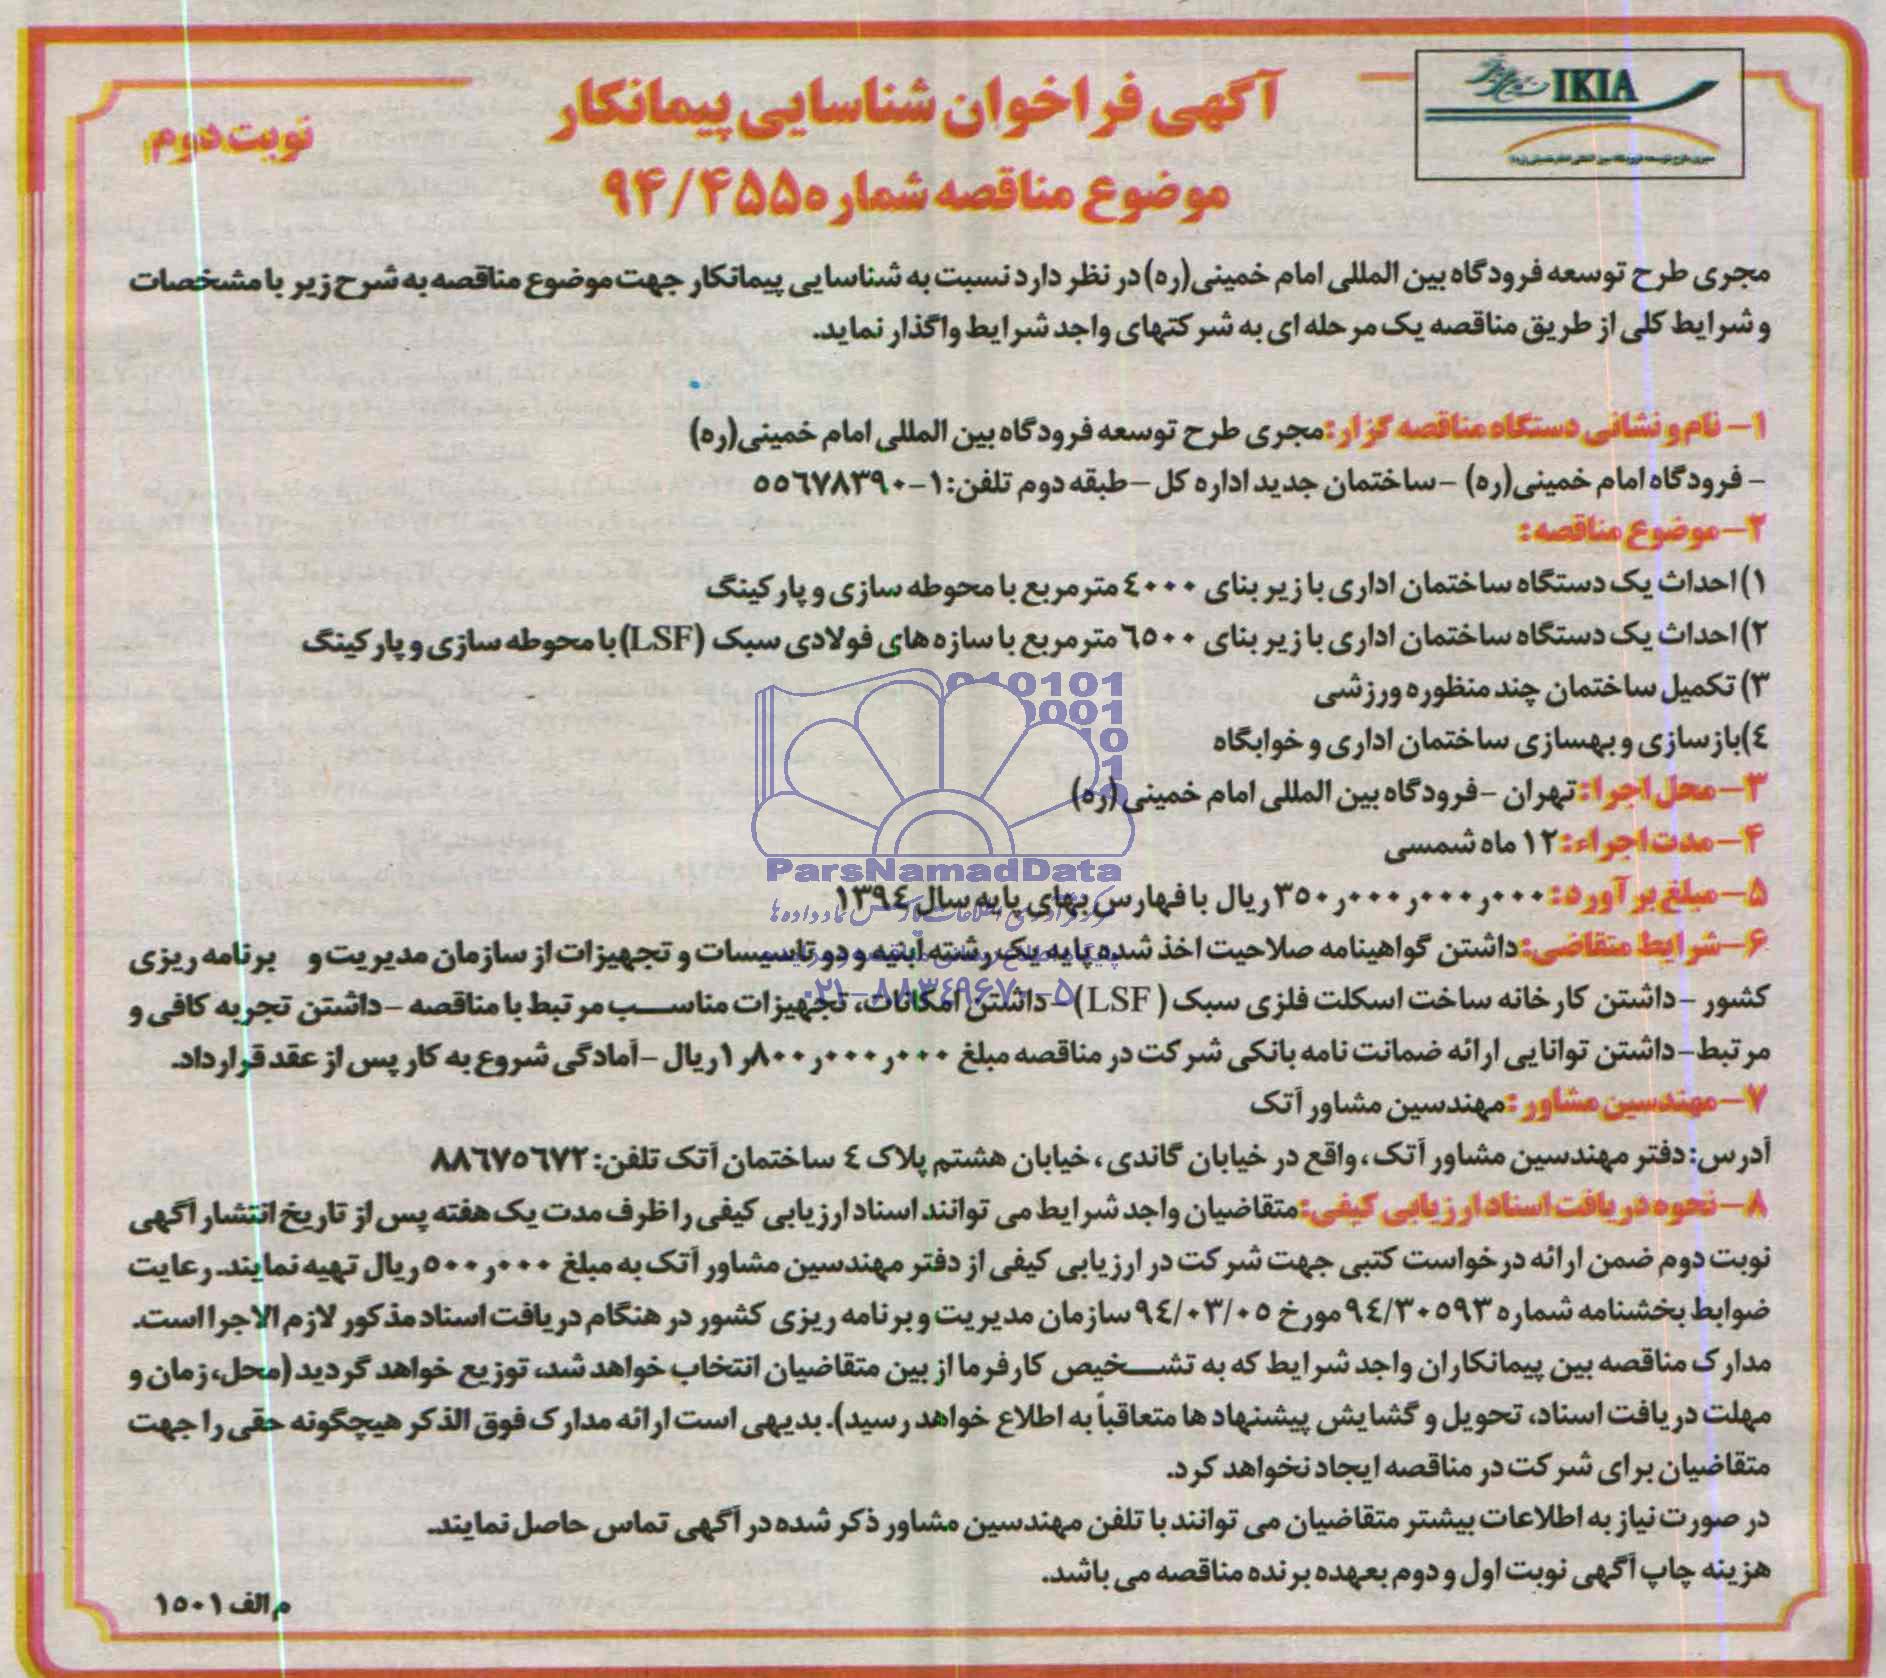 IKIA
آگهی فراخوان شناسایی پیمانکار
نوبت دوم
موضوع مناقصه شماره ۹۴/۴۵۵
مجری طرح توسعه فرودگاه بین المللی امام خمینی(ره) در نظر دارد نسبت به شناسایی پیمانکار جهت موضوع مناقصه به شرح زیر با مشخصات
و شرایط کلی از طریق مناقصه یک مرحله ای به شرکتهای واجد شرایط واگذار نماید.
۱- نام و نشانی دستگاه مناقصه گزار: مجری طرح توسعه فرودگاه بین المللی امام خمینی(ره)
- فرودگاه امام خمینی(ره) - ساختمان جدید اداره کل - طبقه دوم تلفن: ۱-۵۵۶۷۸۳۹۰
۲- موضوع مناقصه:
۱) احداث یک دستگاه ساختمان اداری با زیر بنای ۴۰۰۰ متر مربع با محوطه سازی و پارکینگ
۲) احداث یک دستگاه ساختمان اداری با زیر بنای ۶۵۰۰ متر مربع با سازه های فولادی سبک (LSF) با محوطه سازی و پارکینگ
۳) تکمیل ساختمان چند منظوره ورزشی
۴) بازسازی و بهسازی ساختمان اداری و خوابگاه
۳- محل اجرا: تهران - فرودگاه بین المللی امام خمینی(ره)
۴- مدت اجراء: ۱۲ ماه شمسی
ParsNamadData
۵- مبلغ برآورد: ۳۵۰٫۰۰۰٫۰۰۰٫۰۰۰ ریال با فهارس بهای پایه سال ۱۳۹۴
۶- شرایط متقاضی: داشتن گواهینامه صلاحیت اخذ شده پایه یک رشته ابنیه و دو تاسیسات و تجهیزات از سازمان مدیریت و برنامه ریزی
۰۲۱-۸۸۳۴۹۶۷۰-۵
کشور - داشتن کارخانه ساخت اسکلت فلزی سبک ( LSF )- داشتن امکانات، تجهیزات مناسب مرتبط با مناقصه - داشتن تجربه کافی و
مرتبط- داشتن توانایی ارائه ضمانت نامه بانکی شرکت در مناقصه مبلغ ۱٫۸۰۰٫۰۰۰٫۰۰۰ ریال - آمادگی شروع به کار پس از عقد قرارداد.
۷- مهندسین مشاور: مهندسین مشاور آتک
آدرس: دفتر مهندسین مشاور آتک، واقع در خیابان گاندی، خیابان هشتم پلاک ۴ ساختمان آتک تلفن: ۸۸۶۷۵۶۷۲
۸- نحوه دریافت اسناد ارزیابی کیفی: متقاضیان واجد شرایط می توانند اسناد ارزیابی کیفی را ظرف مدت یک هفته پس از تاریخ انتشار آگهی
نوبت دوم ضمن ارائه درخواست کتبی جهت شرکت در ارزیابی کیفی از دفتر مهندسین مشاور آتک به مبلغ ۵۰۰٫۰۰۰ ریال تهیه نمایند. رعایت
ضوابط بخشنامه شماره ۹۴/۳۰۵۹۳ مورخ ۹۴/۰۳/۰۵ سازمان مدیریت و برنامه ریزی کشور در هنگام دریافت اسناد مذکور لازم الاجرا است.
مدارک مناقصه بین پیمانکاران واجد شرایط که به تشخیص کارفرما از بین متقاضیان انتخاب خواهد شد، توزیع خواهد گردید (محل، زمان و
مهلت دریافت اسناد، تحویل و گشایش پیشنهادها متعاقباً به اطلاع خواهد رسید). بدیهی است ارائه مدارک فوق الذکر هیچگونه حقی را جهت
متقاضیان برای شرکت در مناقصه ایجاد نخواهد کرد.
در صورت نیاز به اطلاعات بیشتر متقاضیان می توانند با تلفن مهندسین مشاور ذکر شده در آگهی تماس حاصل نمایند.
هزینه چاپ آگهی نوبت اول و دوم بعهده برنده مناقصه می باشد.
م الف ۱۵۰۱